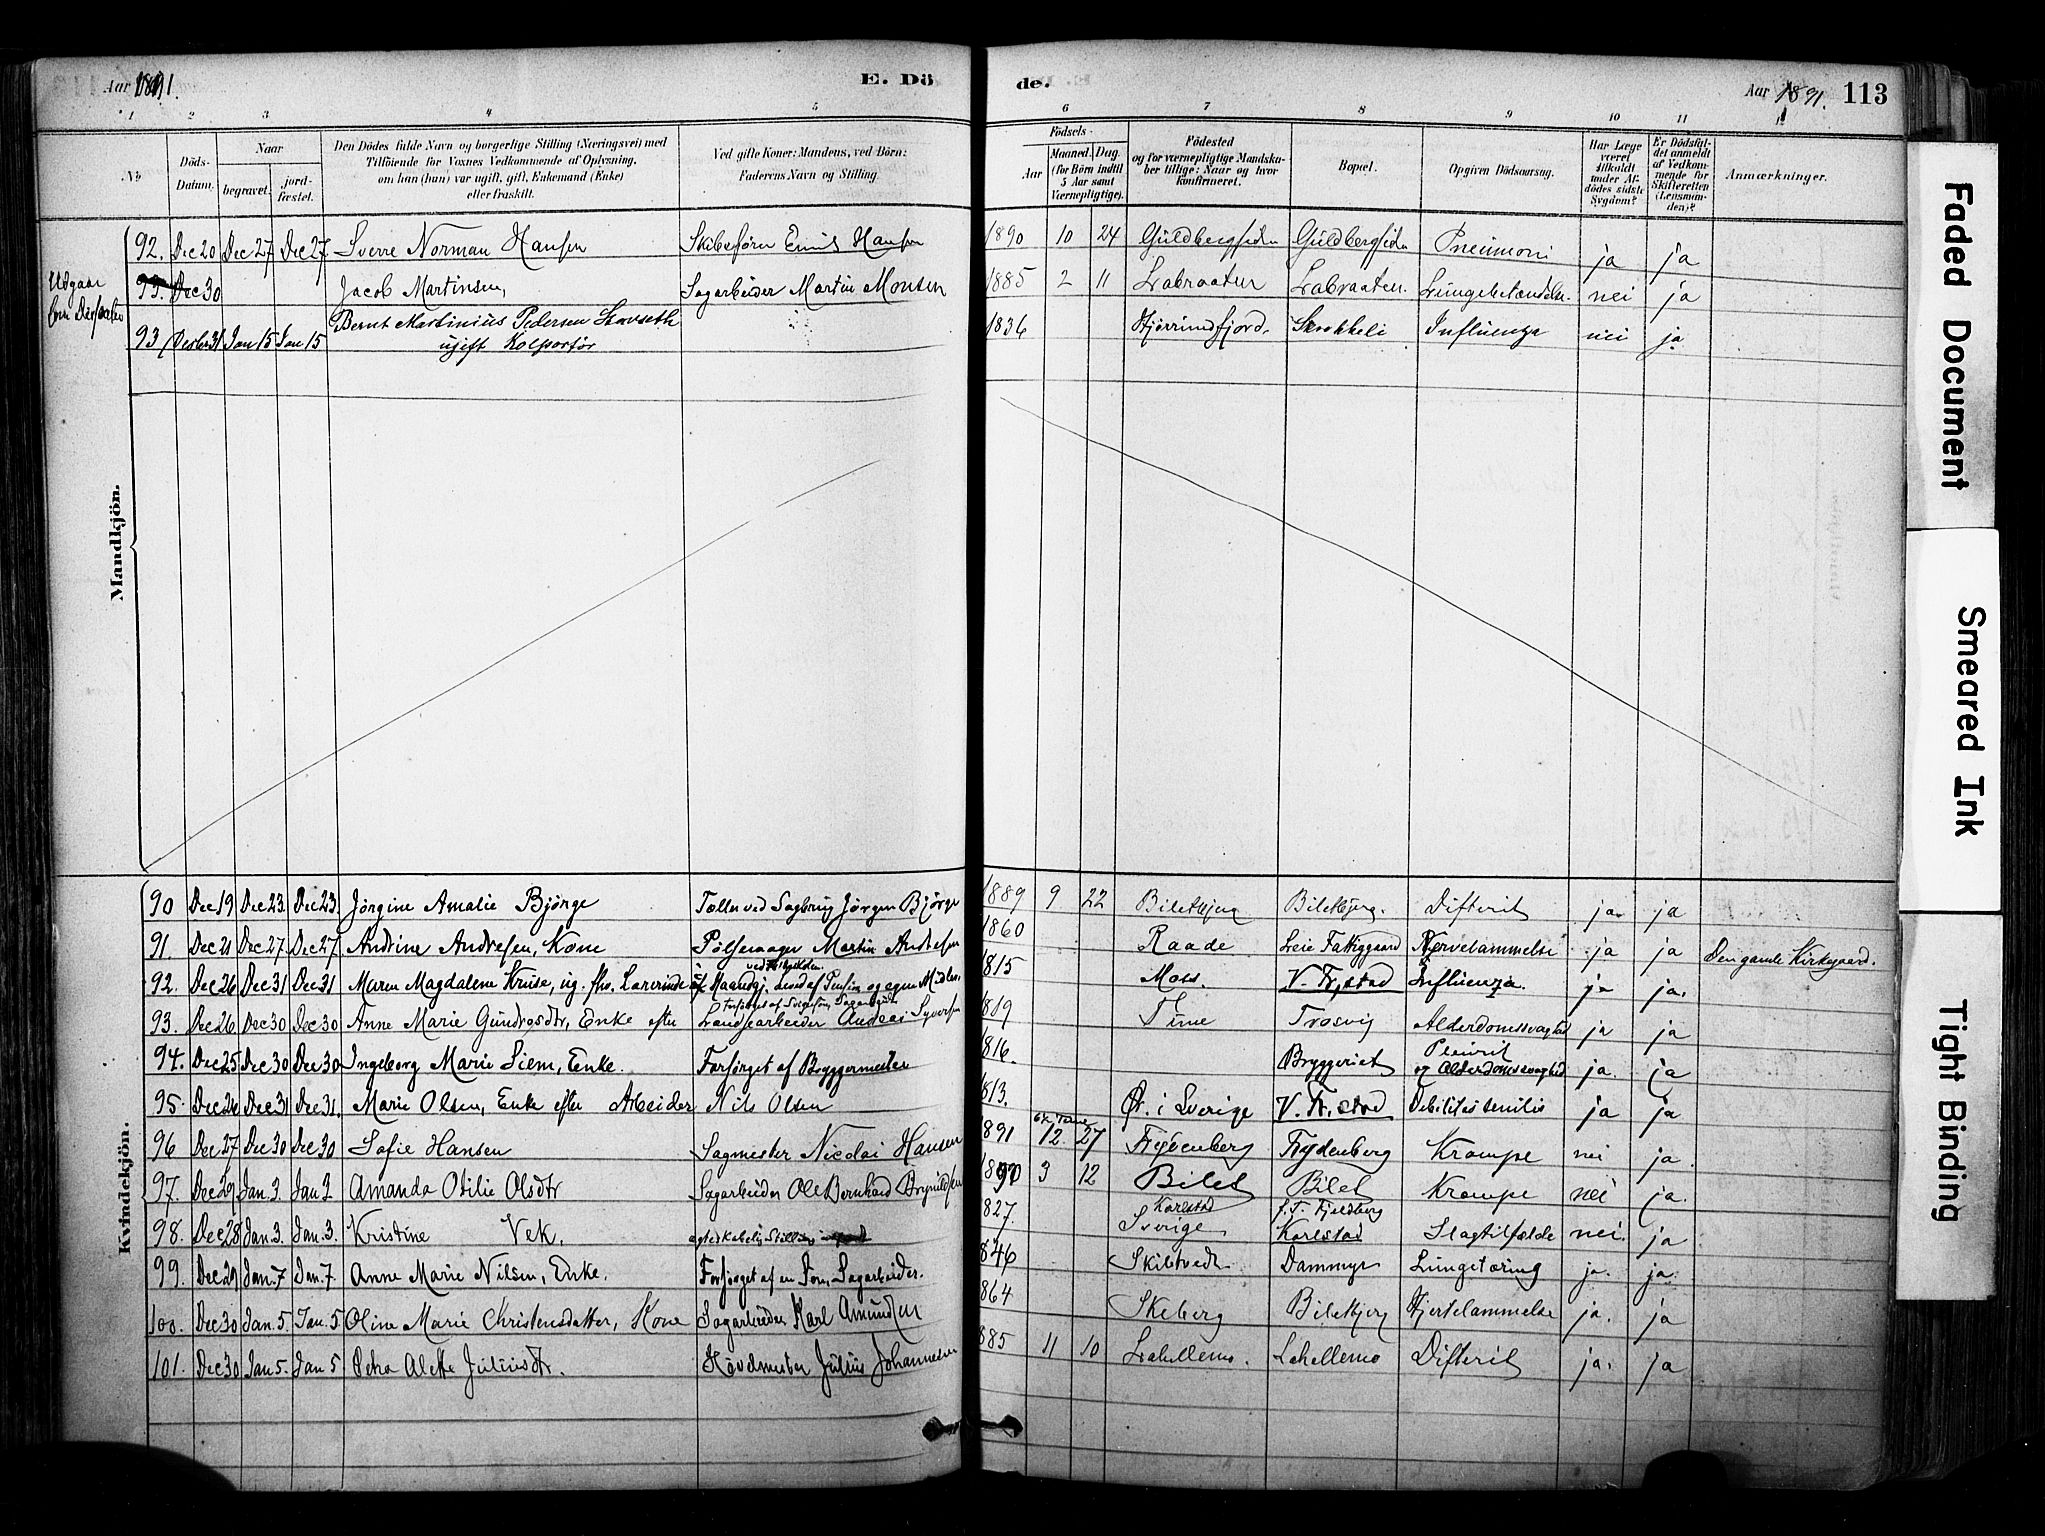 Aar 1891. E. Dö de. Aar 1891. 113
1 2 3 4 5 6 7 8 9 10 11 12
No Döds-Datum. Naar begravet. jordfæstet. Den Dödes fulde Navn og borgerlige Stilling (Næringsvei) med Tilföiende for Voxnes Vedkommende af Oplysning, om han (hun) var ugift, gift, Enkemand (Enke) eller fraskilt. Ved gifte Koner: Mandens, ved Börn: Faderens Navn og Stilling. Födsels- Aar Maaned. Dag. (for Börn indtil 5 Aar samt Værnepligtige). Födested og for værnepligtige Mandskaber tillige: Naar og hvor konfirmeret. Bopæl. Opgiven Dödsaarsag. Har Læge været tilkaldt under Afdödes sidste Sygdom? Er Dödsfaldet anmeldt af Vedkommende for Skifteretten (Lensmanden)? Anmærkninger.
Mandkjön.
92. Dec 20 Dec 27 Dec 27 Sverre Norman Hansen Skibsförer Emil Hansen 1890 10 24 Guldbergsiden Guldbergsiden Pneumoni ja ja
Udgaar
93. Dec 30 Jacob Martinsen, Sagarbeider Martin Monsen 1885 2 11 Labraaten Labraaten. nei ja
93 31 Jan 15 Jan 15 Bernt Martinius Pedersen 1836 Hjörrundfjord. Influenza nei ja
ugift Kolportör
Kvindekjön.
90 Dec 19 Dec 23. Dec 23. Jörgine Amalie Björge Tæller ved Sagbrug Jörgen Björge 1889 9 22 Biletbjerg Biletbjerg. Difterit ja ja
91. Dec 21 Dec 27. Dec 27. Andrine Andresen, Kone Pölsemager Martin Andresen 1860 Raade Leie Fattiggaard Nervelammelse ja ja Den gamle Kirkegaard.
92. Dec 26 Dec 31 Dec 31 Maren Magdalene Kruse, ug. fhv. Lærerinde 1815 Moss. V. Fr.stad Influenza. ja ja.
93. Dec 26 Dec 30 Dec 30 Anne Marie Enke efter Andreas Syversen 1819 Tune Trosvig Alderdomssvaghed ja ja
94. Dec 25 Dec 30 Dec 30 Ingeborg Marie Siem, Enke. Forsörget af Bryggermester 1816. Bryggeriet Pleurit og Alderdomssvaghed ja. ja
95 Dec 24 Dec 31 Dec 31. Marie Olsen, Enke efter Arbeider Nils Olsen 1813. i Sverige V. Fr.stad Debilitas senilis ja ja
96 Dec 27 Dec 30 Dec 30 Sofie Hansen Sagmester Nicolai Hansen 1891 12 27 Frydenberg Frydenberg Krampe nei ja.
97. Dec 29 Jan. 3. Jan 3 Amanda Otilie Olsdtr Sagarbeider Ole Bernhard 1890 3 12 Bilet Bilet Krampe nei ja.
98. Dec 28 Jan. 3. Jan. 3. Kristine Vek. 1827. Karlstad Sverige Karlstad Slagtilfælde nei. ja
99. Dec 29 Jan. 7 Jan. 7 Anne Marie Nilsen, Enke. Forsörget af en Sön, Sagarbeider. 1846 Skibtvedt Dammyr Lungetæring ja. ja
100. Dec 30 Jan. 5. Jan. 5 Oline Marie Christensdatter, Kone Sagarbeider Karl Amundsen 1864 Skeberg Biletbjerg Hjertelammelse ja. ja
101. Dec 30 Jan 5. Jan 5 Petra Alette Juliusdtr. Hövelmester Julius Johannesen 1885 11 10 Difterit ja. ja
Faded Document
Smeared Ink
Tight Binding